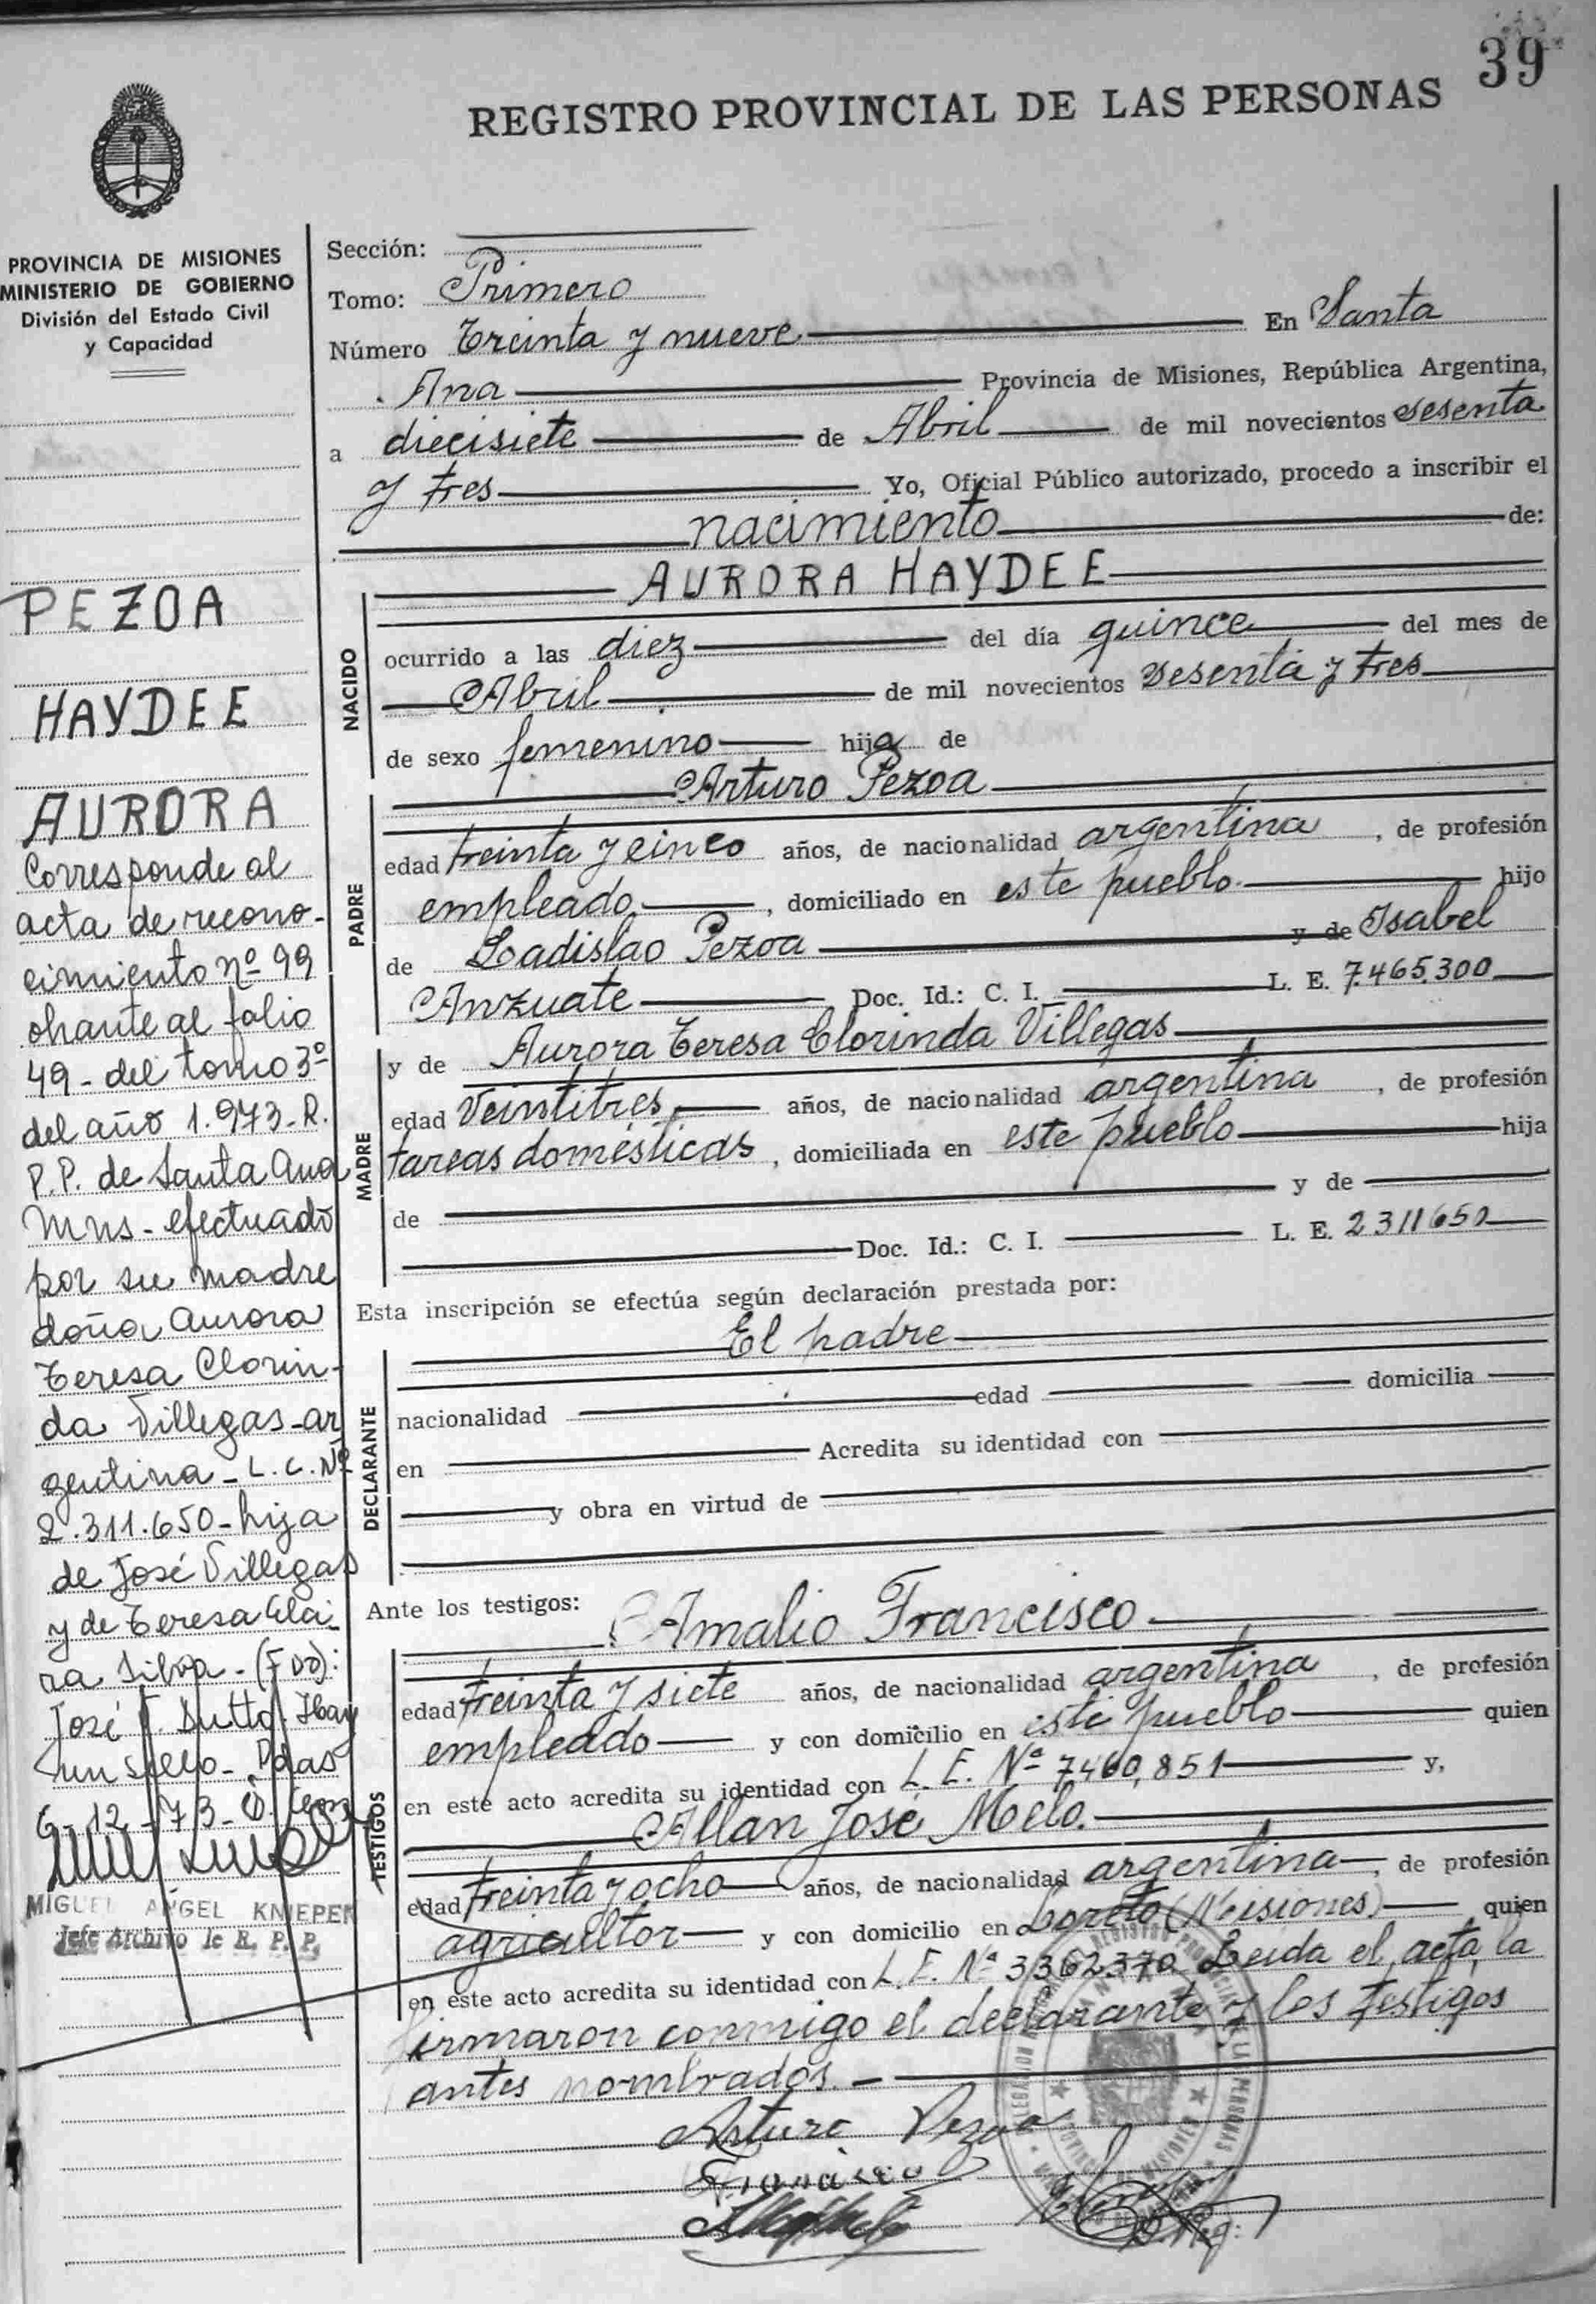 39
REGISTRO PROVINCIAL DE LAS PERSONAS
PROVINCIA DE MISIONES
MINISTERIO DE GOBIERNO
División del Estado Civil
y Capacidad
PEZOA
HAYDEE
AURORA
Corresponde al
acta de recono-
cimiento nº 99
obrante al folio
49 - del tomo 3º
del año 1.973 - R.
P.P. de Santa Ana
Mns - efectuado
por su madre
doña Aurora
Teresa Clorin-
da Villegas - ar
gentina - L. C. Nº
2.311.650 - hija
de José Villegas
y de Teresa Cla
ra Silva - (Fdo):
José Dutto. Hay
un sello - Pdas
6 - 12 - 73 -
MIGUEL ANGEL KNIEPER
Jefe Archivo de R. P. P.
Sección:
Tomo: Primero
Número Treinta y nueve En Santa
Ana Provincia de Misiones, República Argentina,
a diecisiete de Abril de mil novecientos sesenta
y tres Yo, Oficial Público autorizado, procedo a inscribir el
nacimiento de:
AURORA HAYDEE
NACIDO
ocurrido a las diez del día quince del mes de
Abril de mil novecientos sesenta y tres
de sexo femenino hija de
PADRE
Arturo Pezoa
edad treinta y cinco años, de nacionalidad argentina, de profesión
empleado, domiciliado en este pueblo. hijo
de Ladislao Pezoa y de Isabel
Anzuate Doc. Id.: C. I. L. E. 7.465.300
MADRE
y de Aurora Teresa Clorinda Villegas
edad Veintitres años, de nacionalidad argentina, de profesión
tareas domésticas, domiciliada en este pueblo hija
de y de
Doc. Id.: C. I. L. E. 2311650
Esta inscripción se efectúa según declaración prestada por:
El padre
DECLARANTE
nacionalidad edad domicilia
en Acredita su identidad con
y obra en virtud de
Ante los testigos:
Amalio Francisco
TESTIGOS
edad treinta y siete años, de nacionalidad argentina, de profesión
empleado y con domicilio en este pueblo quien
en este acto acredita su identidad con L. E. Nº 7460,851 y,
Allan José Melo.
edad treinta y ocho años, de nacionalidad argentina, de profesión
agricultor y con domicilio en Loreto (Misiones) quien
en este acto acredita su identidad con L. E. Nº 3362370 Leida el acta, la
firmaron conmigo el declarante y los testigos
antes nombrados. -
Arturo Pezoa
Francisco